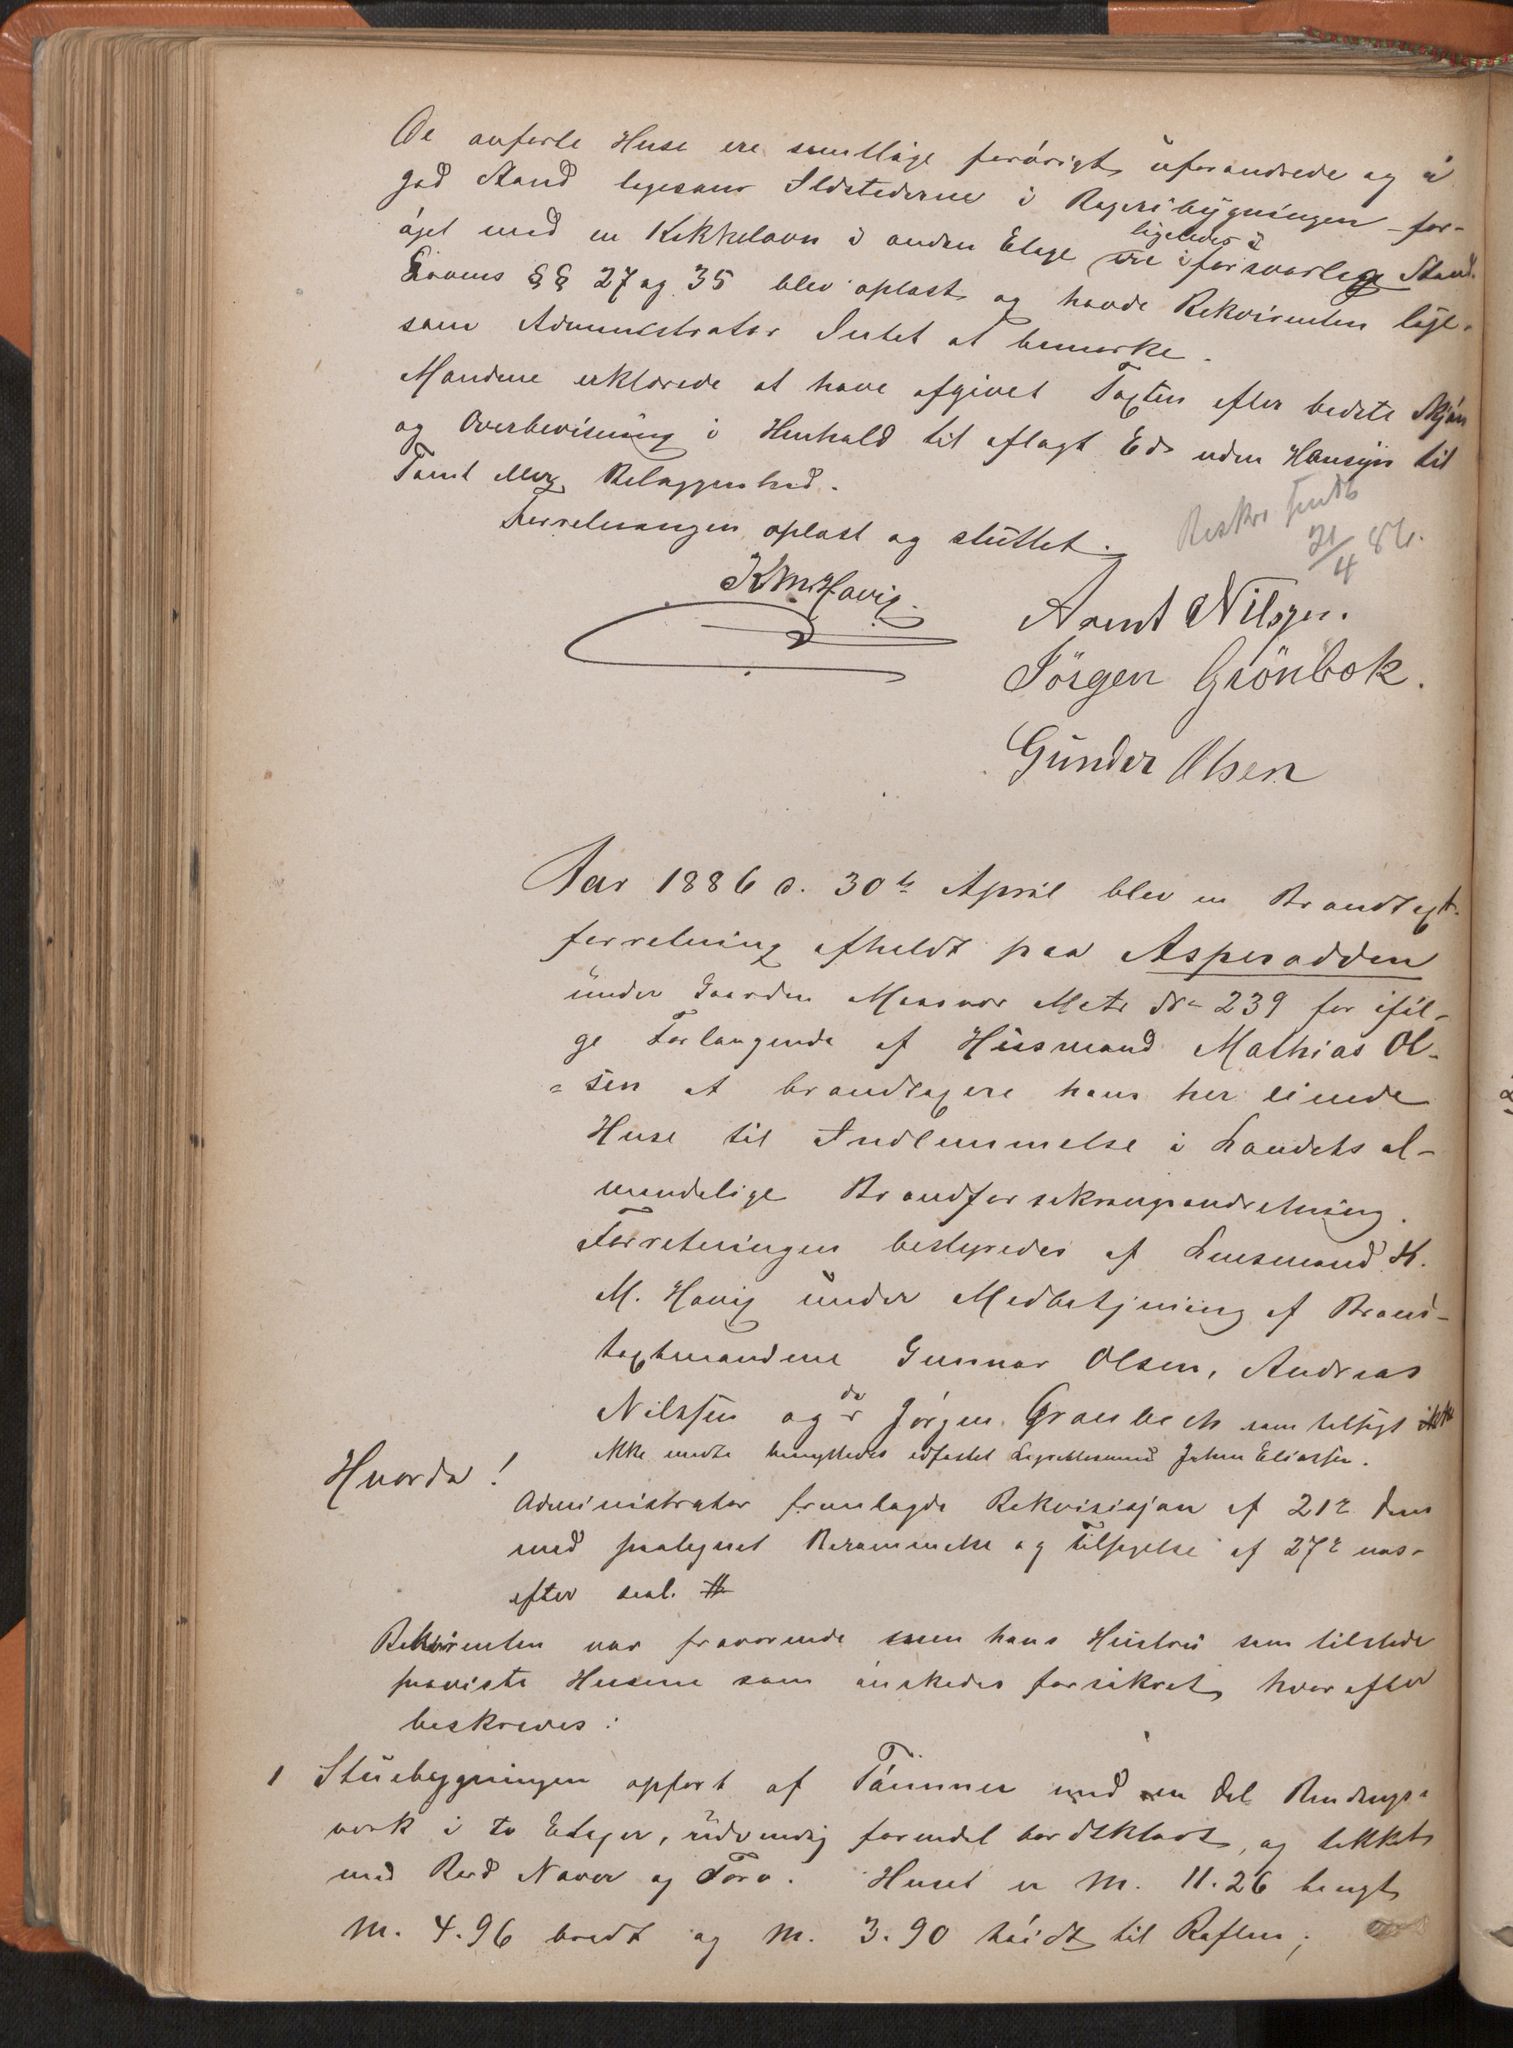 De anførte Huse ere samtlige forøvrigt uforandrede og i
god Stand ligesom Ildstederne i Bageribygningen for-
øget med en Kakkelovn i anden Etage ere ligeledes i forsvarlig Stand.
Lovens §§ 27 og 35 blev oplæst og havde Rekvirenten lige-
som Administrator Intet at bemærke.
Mændene erklærede at have afgivet Taxten efter bedste Skjøn
og Overbevisning i Henhold til aflagt Ed uden Hensyn til
Tomt eller Beliggenhed.
Forretningen oplæst og sluttet.
Beskr. sendt
21/4 86.
K M. Havig.
Arent Nilsen.
Jörgen Grönbek.
Gunder Olsen
Aar 1886 d. 30te April blev en Brandtaxt-
forretning afholdt paa Asperodden
under Gaarden Maasvær Matr No 239 for iføl-
ge Forlangende af Husmand Mathias Ol-
sen at brandtaxere hans her eiende
Huse til Indlemmelse i Landets al-
mindelige Brandforsikringsindretning.
Forretningen bestyredes af Lensmand K.
M. Havig under Medbetjening af Brand-
taxtmændene Gunnar Olsen, Andreas
Nilssen og da Jørgen Grønbech som tilsagt
ikke mødte benyttedes edfæstet Lagrettesmand Johan Eliassen.
Hvorda!
Administrator fremlagde Rekvisisjon af 21de dens
med paategnet Berammelse og Tilsigelse af 27de næs-
efter saal. #
Rekvirenten var fraværende men hans Hustru som tilstede
paaviste Husene som ønskedes forsikret, hvorefter
beskreves:
1 Stuebygningen opført af Tømmer med en Del Bindings-
værk i to Etager, udvendig forendel bordklædt, og tækket
med Bord Næver og Torv. Huset er M. 11.26 langt
M. 4.96 bredt og M. 3.90 høidt til Raften;